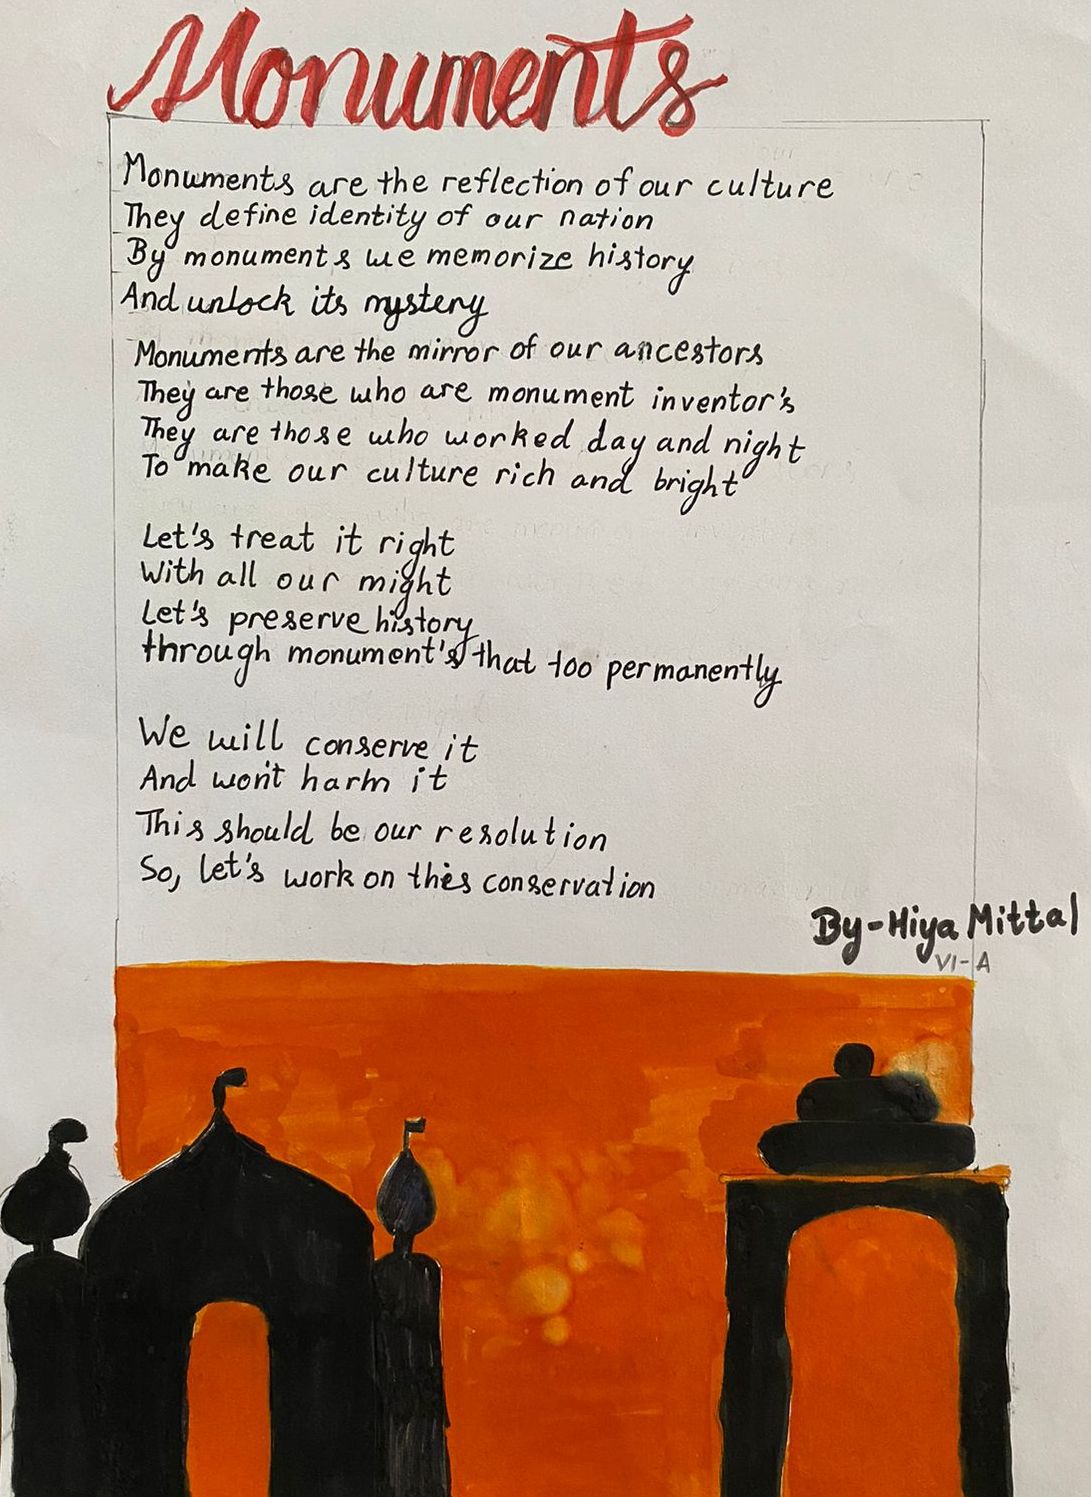 Monuments
Monuments are the reflection of our culture
They define identity of our nation
By monuments we memorize history
And unlock its mystery
Monuments are the mirror of our ancestors
They are those who are monument inventor's
They are those who worked day and night
To make our culture rich and bright
Let's treat it right
With all our might
Let's preserve history
through monument's that too permanently
We will conserve it
And won't harm it
This should be our resolution
So, let's work on this conservation
By-Hiya Mittal
VI-A